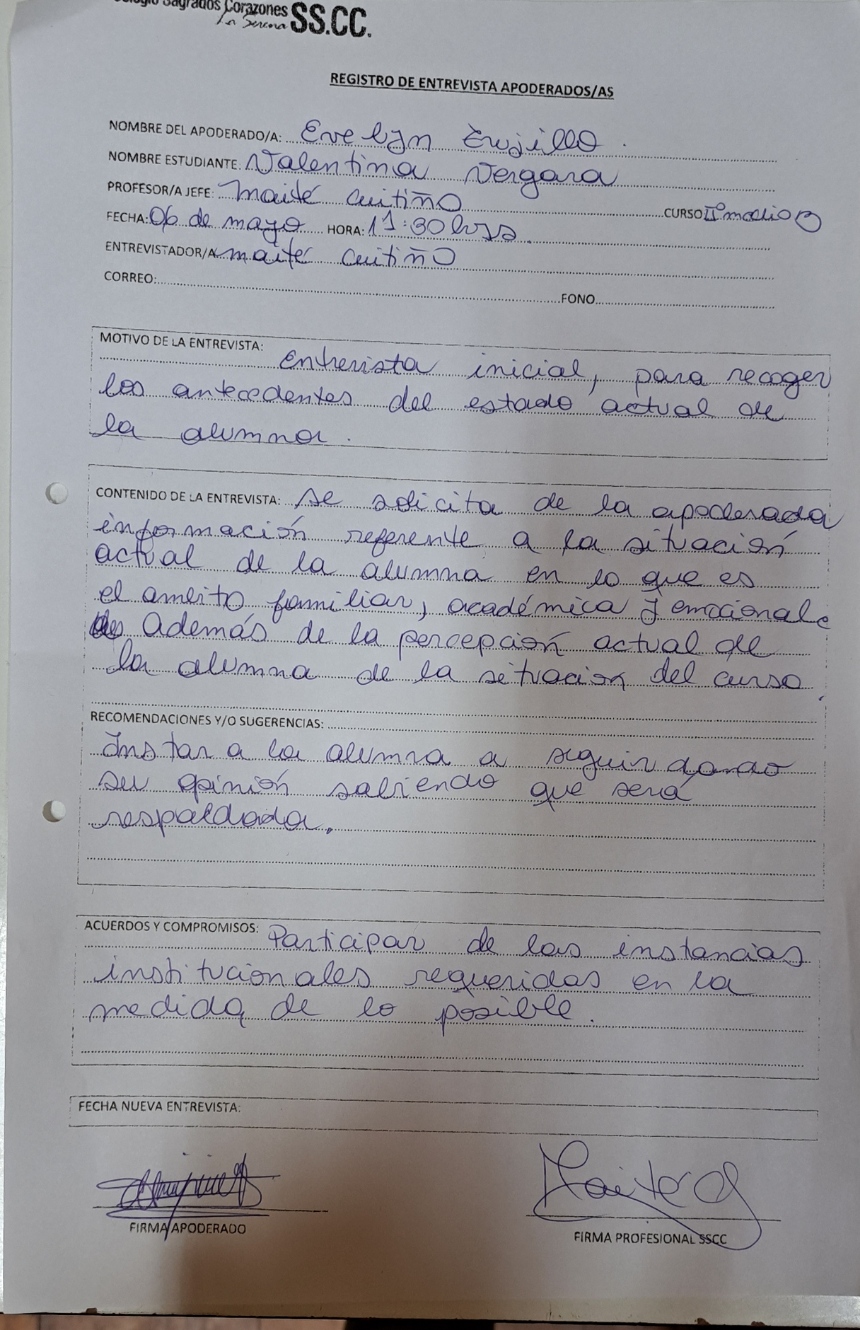 Colegio Sagrados Corazones SS.CC.
La Serena
REGISTRO DE ENTREVISTA APODERADOS/AS
NOMBRE DEL APODERADO/A: Evelyn Trujillo.
NOMBRE ESTUDIANTE: Valentina Vergara
PROFESOR/A JEFE: Maité Cuitiño CURSO IIº medio B
FECHA: 06 de mayo HORA: 11:30 hrs.
ENTREVISTADOR/A maité cuitiño
CORREO: FONO
MOTIVO DE LA ENTREVISTA: Entrevista inicial, para recoger
los antecedentes del estado actual de
la alumna.
CONTENIDO DE LA ENTREVISTA: se solicita de la apoderada
información referente a la situación
actual de la alumna en lo que es
el ambito familiar, académica y emocional.
Además de la percepción actual de
la alumna de la situación del curso.
RECOMENDACIONES Y/O SUGERENCIAS:
Instar a la alumna a seguir dando
su opinión sabiendo que será
respaldada.
ACUERDOS Y COMPROMISOS: Participar de las instancias
institucionales requeridas en la
medida de lo posible.
FECHA NUEVA ENTREVISTA:
Maite C
FIRMA APODERADO
FIRMA PROFESIONAL SSCC